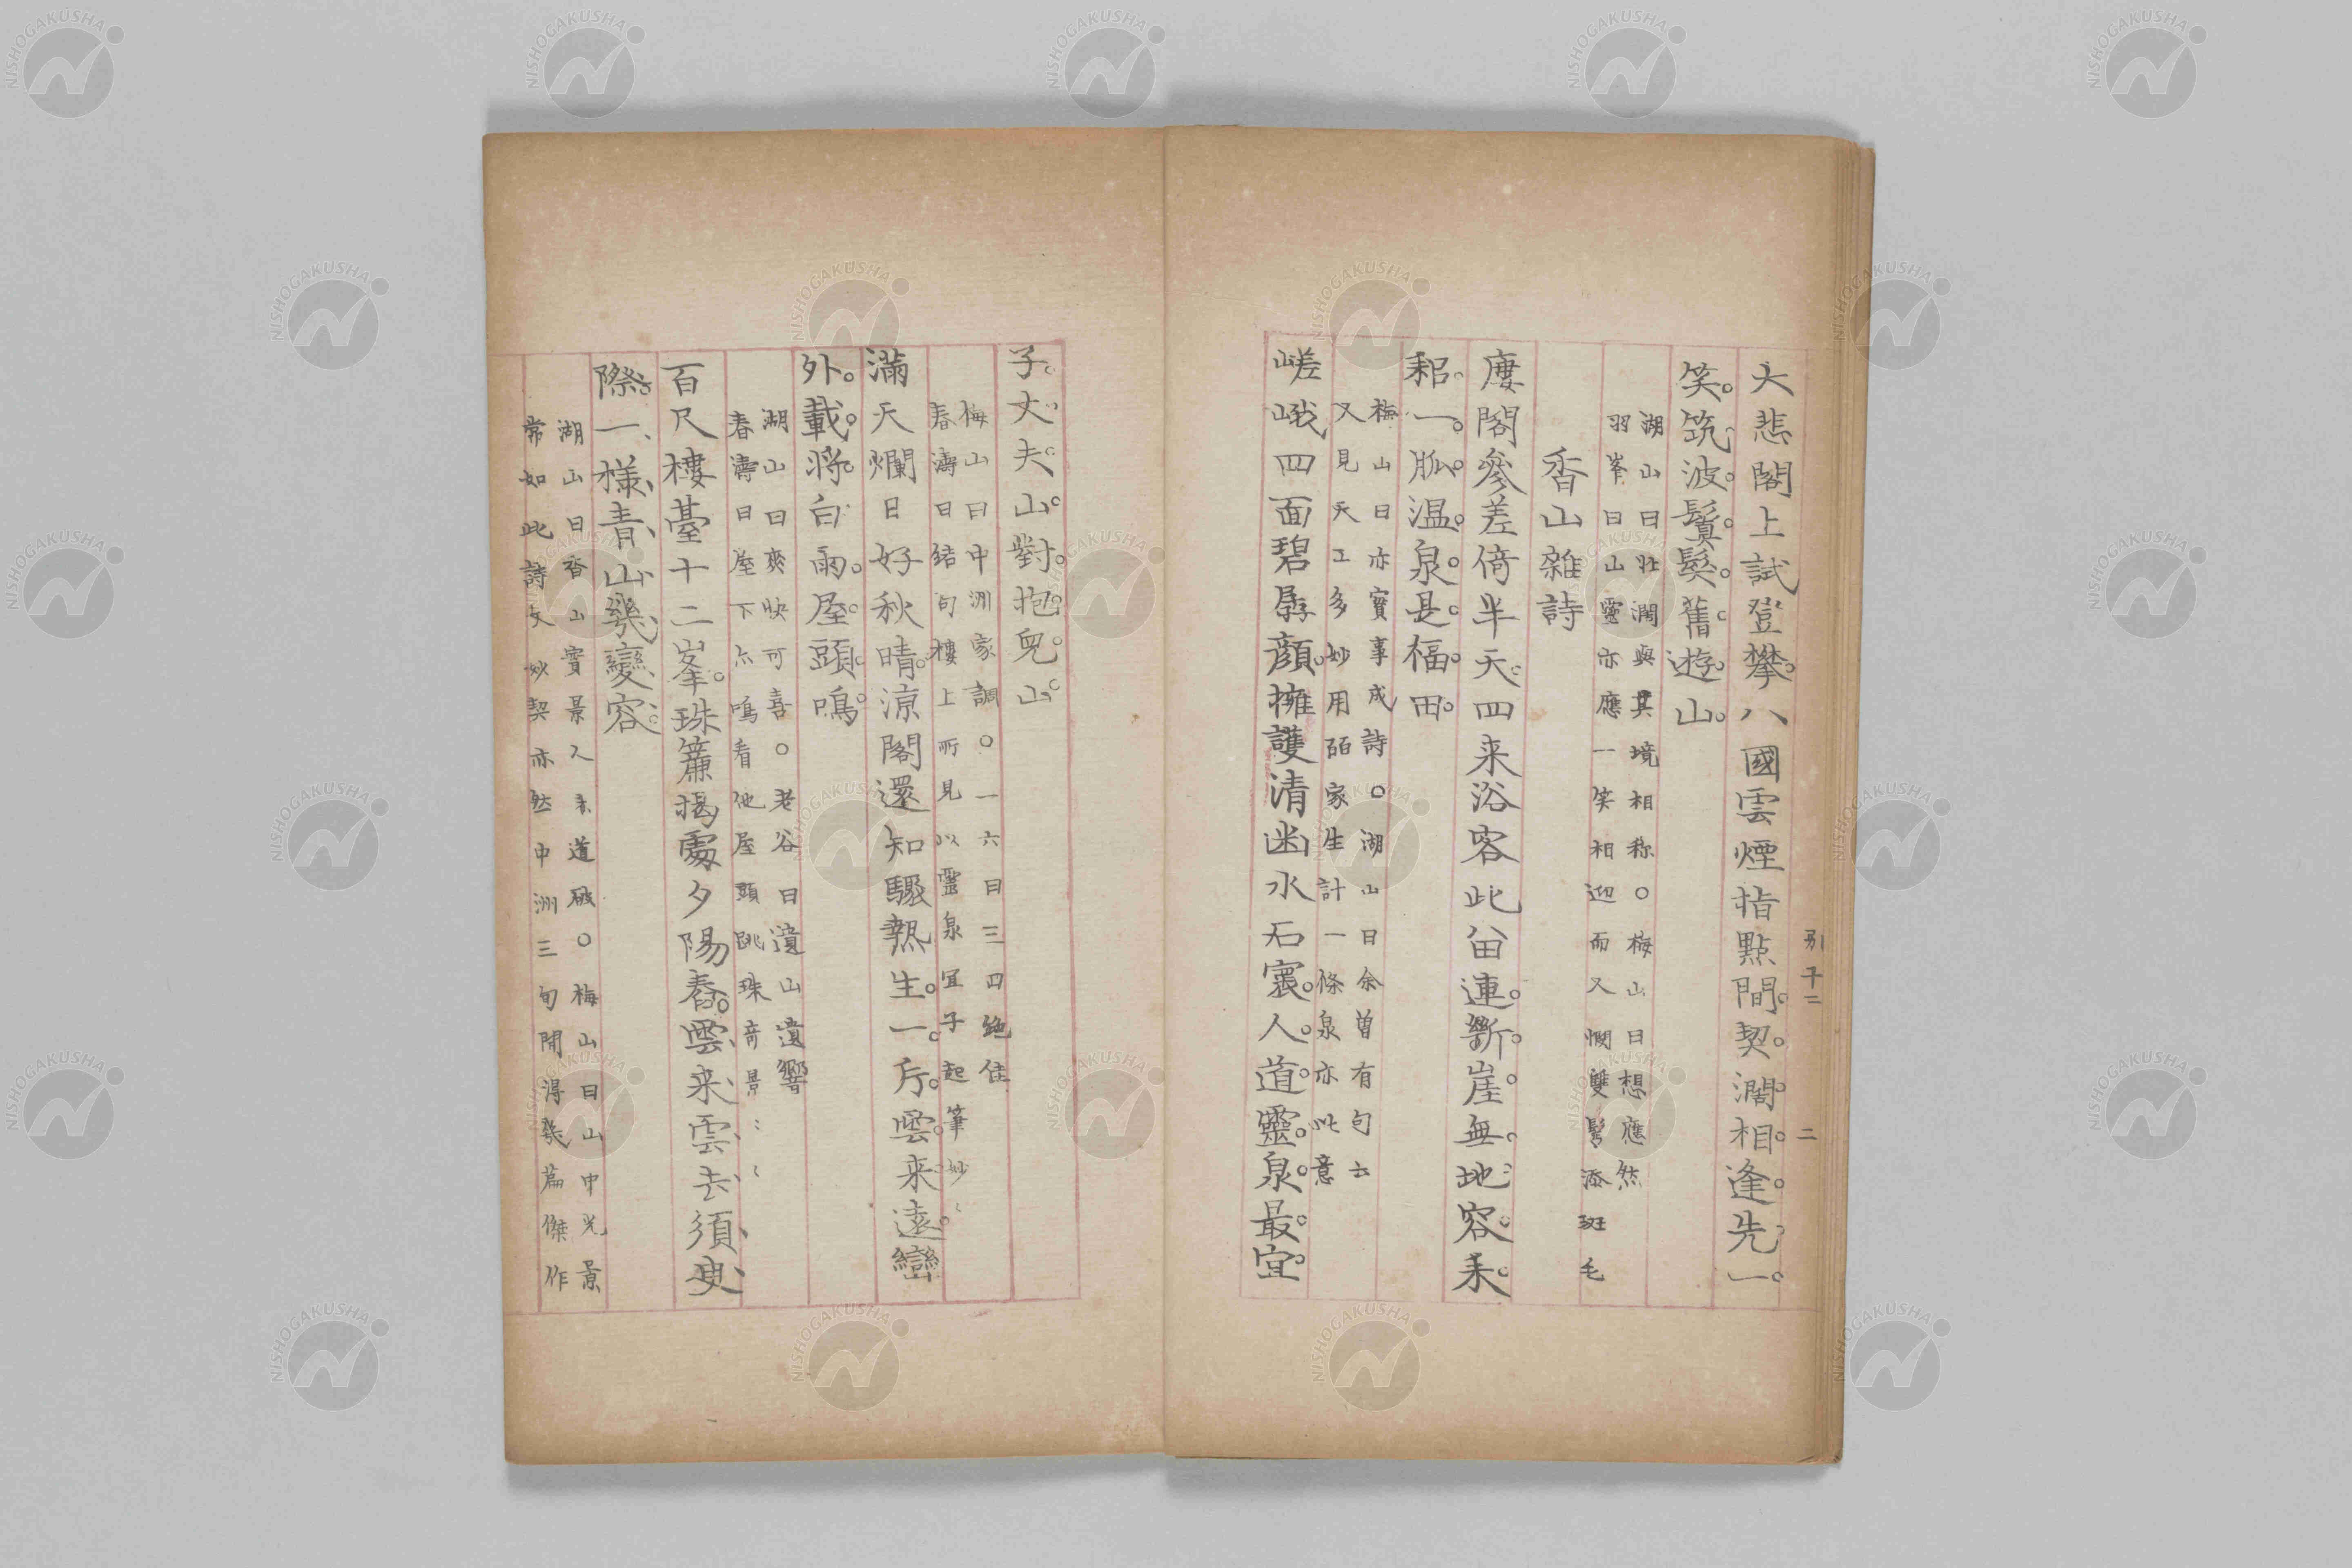 大悲閣上試登攀。八國雲煙指點間。契濶相逢先一
笑。筑波鬟髮舊遊山。
湖山曰壮濶與其境相称○梅山曰想應然
羽峯曰山靈亦應一笑相迎而又憫雙鬢添斑毛
香山雜詩
廔閣參差倚半天。四来浴客此留連。斷崖無地容耒
耜。一脈温泉是福田。
梅山曰亦實事成詩○湖山曰余曽有句云
又見天工多妙用百家生計一條泉亦此意
嵯峨四面碧孱顔。擁護清幽水石寰。人道靈泉最宜
別子二
二
子。丈夫山對抱兒山。
梅山曰中洲家調○一六曰三四絶佳
春濤曰結句樓上所見以靈泉宜子起筆妙〻
滿天爛日好秋晴。涼閣還知驟熱生。一片雲来遠巒
外。載將白雨屋頭鳴。
湖山曰爽快可喜○老谷曰遺山遺響
春濤曰屋下亦鳴看他屋頭跳珠奇景〻〻
百尺樓臺十二峯。珠簾掲處夕陽舂。雲来雲去須臾
際。一様青山幾變容。
湖山曰香山實景人未道破○梅山曰山中光景
常如此詩文妙契亦然中洲三旬間得幾篇傑作
NISHOGAKUSHA